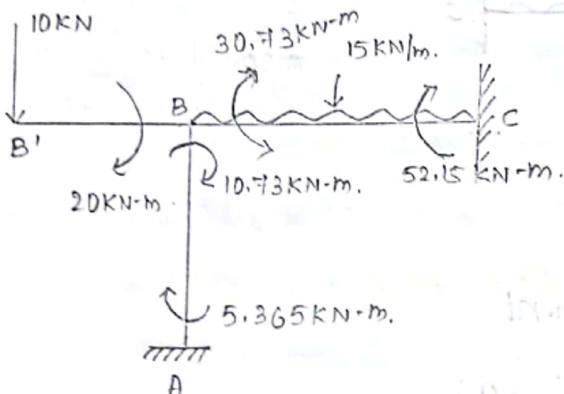 10KN
30.73KN-m
15KN/m.
B
C
B'
20KN-m.
10.73KN-m.
52.15 KN-m.
5.365KN-m.
A